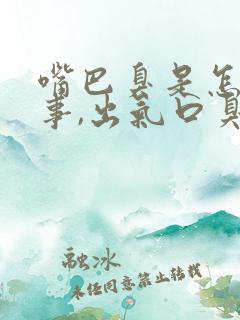 嘴巴臭是怎
事,出氣口臭
融冰
未经同意禁止转载